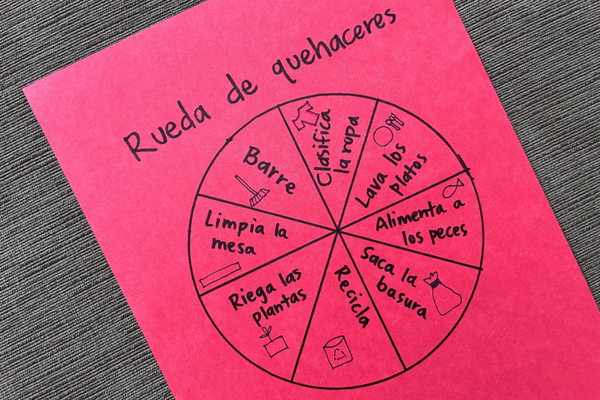 Rueda de quehaceres
Clasifica
la ropa
Lava los
platos
Alimenta a
los peces
Saca la
basura
Recicla
Riega las
plantas
Limpia la
mesa
Barre